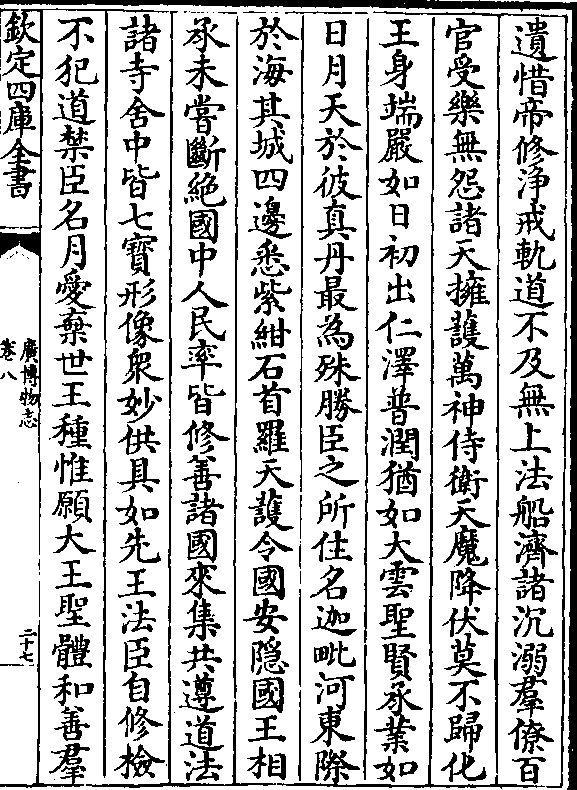 遺惜帝修浄戒軌道不及無上法船濟諸沉溺羣僚百
官受樂無怨諸天擁䕶萬神侍衛天魔降伏莫不歸化
王身端嚴如日初出仁澤普潤猶如大雲聖賢承業如
日月天於彼真丹最為殊勝臣之所住名迦毗河東際
於海其城四邊悉紫紺石首羅天䕶令國安隱國王相
承未嘗斷絕國中人民率皆修善諸國來集共遵道法
諸寺舍中皆七寶形像衆妙供具如先王法臣自修檢
不犯道禁臣名月愛棄世王種惟願大王聖體和善羣
欽定四庫全書
廣博物志
卷八
二十七